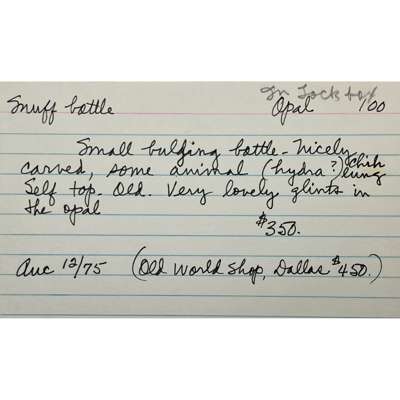 In Lock box
Snuff bottle Opal 100
Small bulging bottle - Nicely
carved, some animal (hydra?) chih
lung
Self top. Old. Very lovely glints in
the opal
$350.
Auc 12/75 (Old World Shop, Dallas $450.)